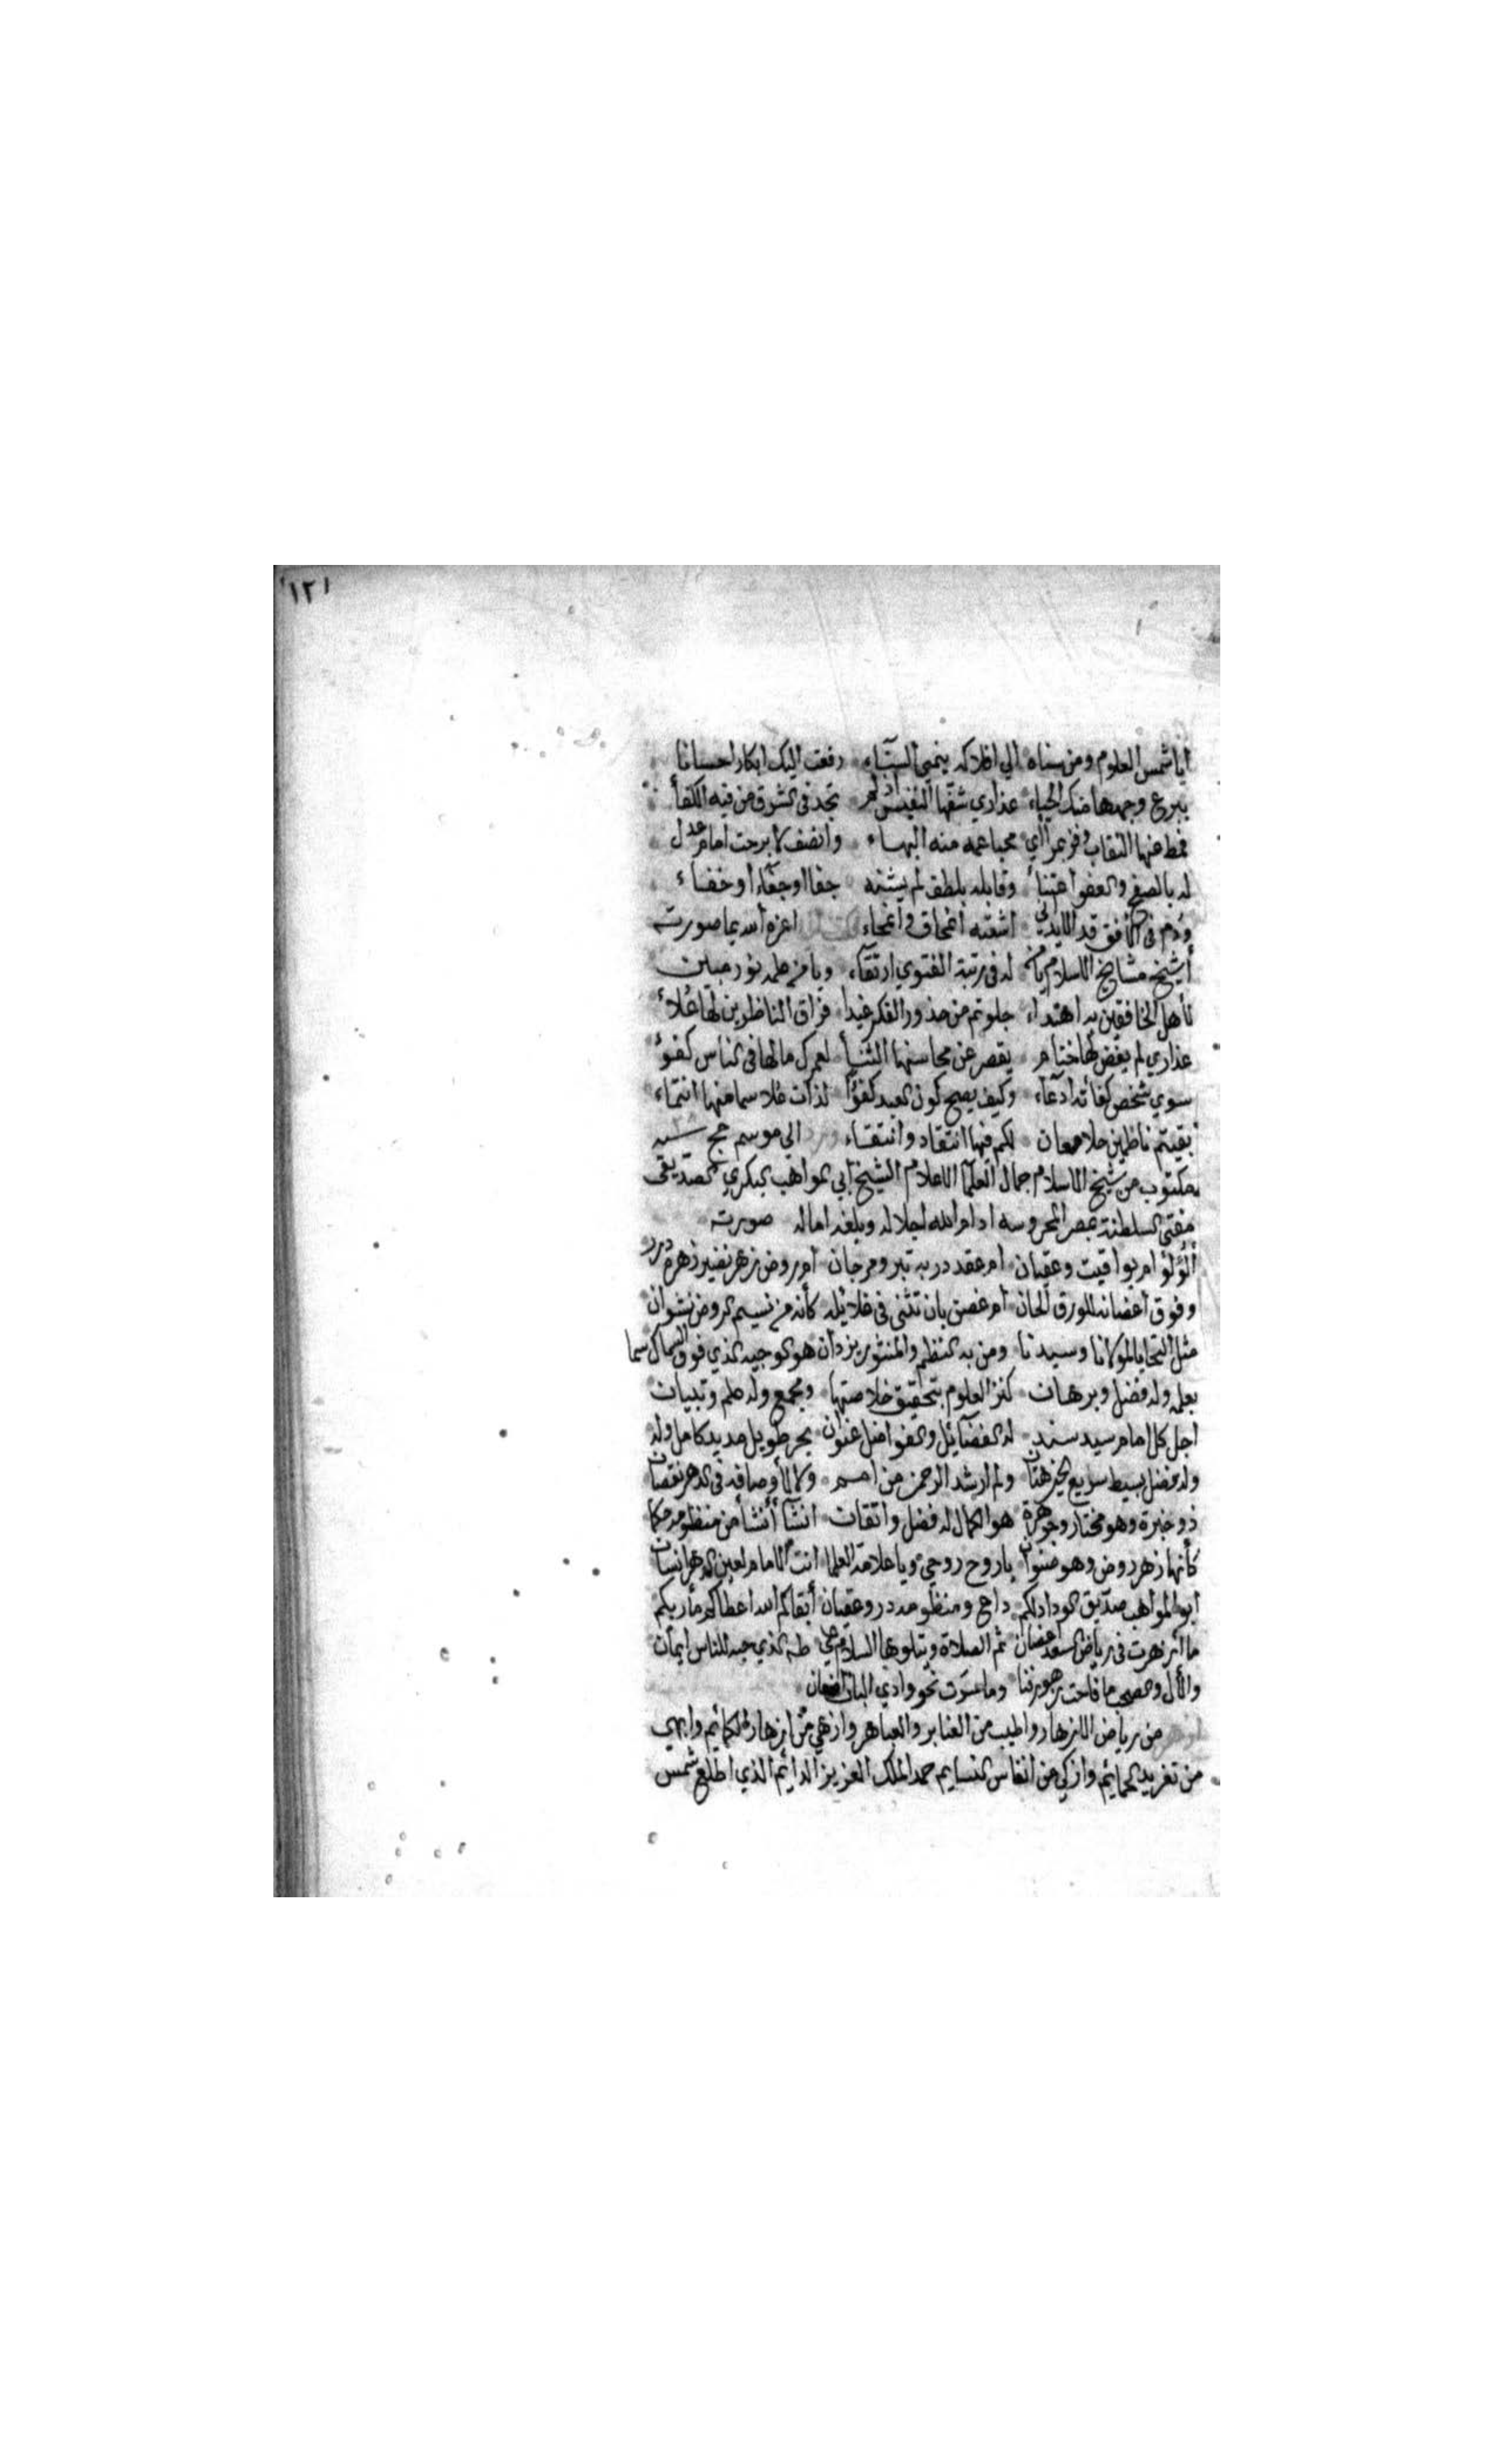 ١٢١
أيا شمس العلوم ومن سناه الي افلاكه ينمي السناء رفعت اليك ابكارا حسانا
يبرع وجهها منك الحياء عذاري شقها النفيس اذ لم تجد في الشرق من فيه الكفأ
فمط عنها النقاب وفز بمرأي محيا عمه منه البهاء وانصف لا برحت امام عدل
له بالصفح والعفو اعتنأ وقابله بلطف لم يشنه جفا اوجفاء او خفاء
ودم في الأفق قد الليالي اشعته انمحاق وانمحاء اعزه الله بما صورته
أشيخ مشايخ الاسلام يامن له في رتبة الفتوي ارتقاء ويا من علمه نور مبين
لأهل الخافقين به اهتداء جلوتم من خدور الفكر غيدا فراق الناظرين لها علاء
عذاري لم يفض لها ختام يقصر عن محاسنها الثنأ لعمرك مالها في الناس كفؤ
سوي شخص كفائته ادعاء وكيف يصح كون العبد كفؤا لذات علا سما منها انتماء
بقيتم ناظمين حلا معان لكم فيها انتقاد وانتقاء الي موسم حج سنه
مكتوب من شيخ الاسلام جمال العلما الاعلام الشيخ ابي المواهب البكري الصديقي
مفتي السلطنة بمصر المحروسه ادام الله اجلاله وبلغه اماله صورته
ألؤلؤ ام يواقيت وعقيان ام عقد در به تبر ومرجان ام روض زهر نضير زهره درر
وفوق أغصانه للورق ألحان ام غصن بان تثنى في غلائله كأنه من نسيم الروض نشوان
مثل التحايا لمولانا وسيدنا ومن به النظم والمنثور يزدان هو الوجيه الذي فوق السماك سما
بعلمه وله فضل وبرهان كنز العلوم بتحقيق خلاصتها ومجمع وله علم وتبيان
اجل كل امام سيد سند له الفضائل والفواضل عنوان بحر طويل مديد كامل وله
وله فضل بسيط سريع الخير هتان ولم ارشد الرحمن من امم ولا لأوصافه في الدهر نقصان
ذو خبرة وهو مختار وجوهرة هو الكمال له فضل واتقان انشا أنشأ من منظومه حكما
كأنها زهر روض وهو صنوان يا روح روحي ويا علامة العلما انت الامام لعين الدهر انسان
ابو المواهب صديق الوداد لكم داع ومنظومه در وعقيان أبقاكم الله اعطاكم مأربكم
ما أزهرت في رياض السعد اغصان ثم الصلاة ويتلوها السلام علي طه الذي حبه للناس ايمان
والأل والصحب ما فاحت زهور ربا وما سرت نحو وادي البان اضعان
من رياض الازهار واطيب من العنابر والعباهر وازهي من ازهار الكمائم وابهي
من تغريد الحمائم وازكي من انفاس النسايم حمد الملك العزيز الدائم الذي اطلع شمس